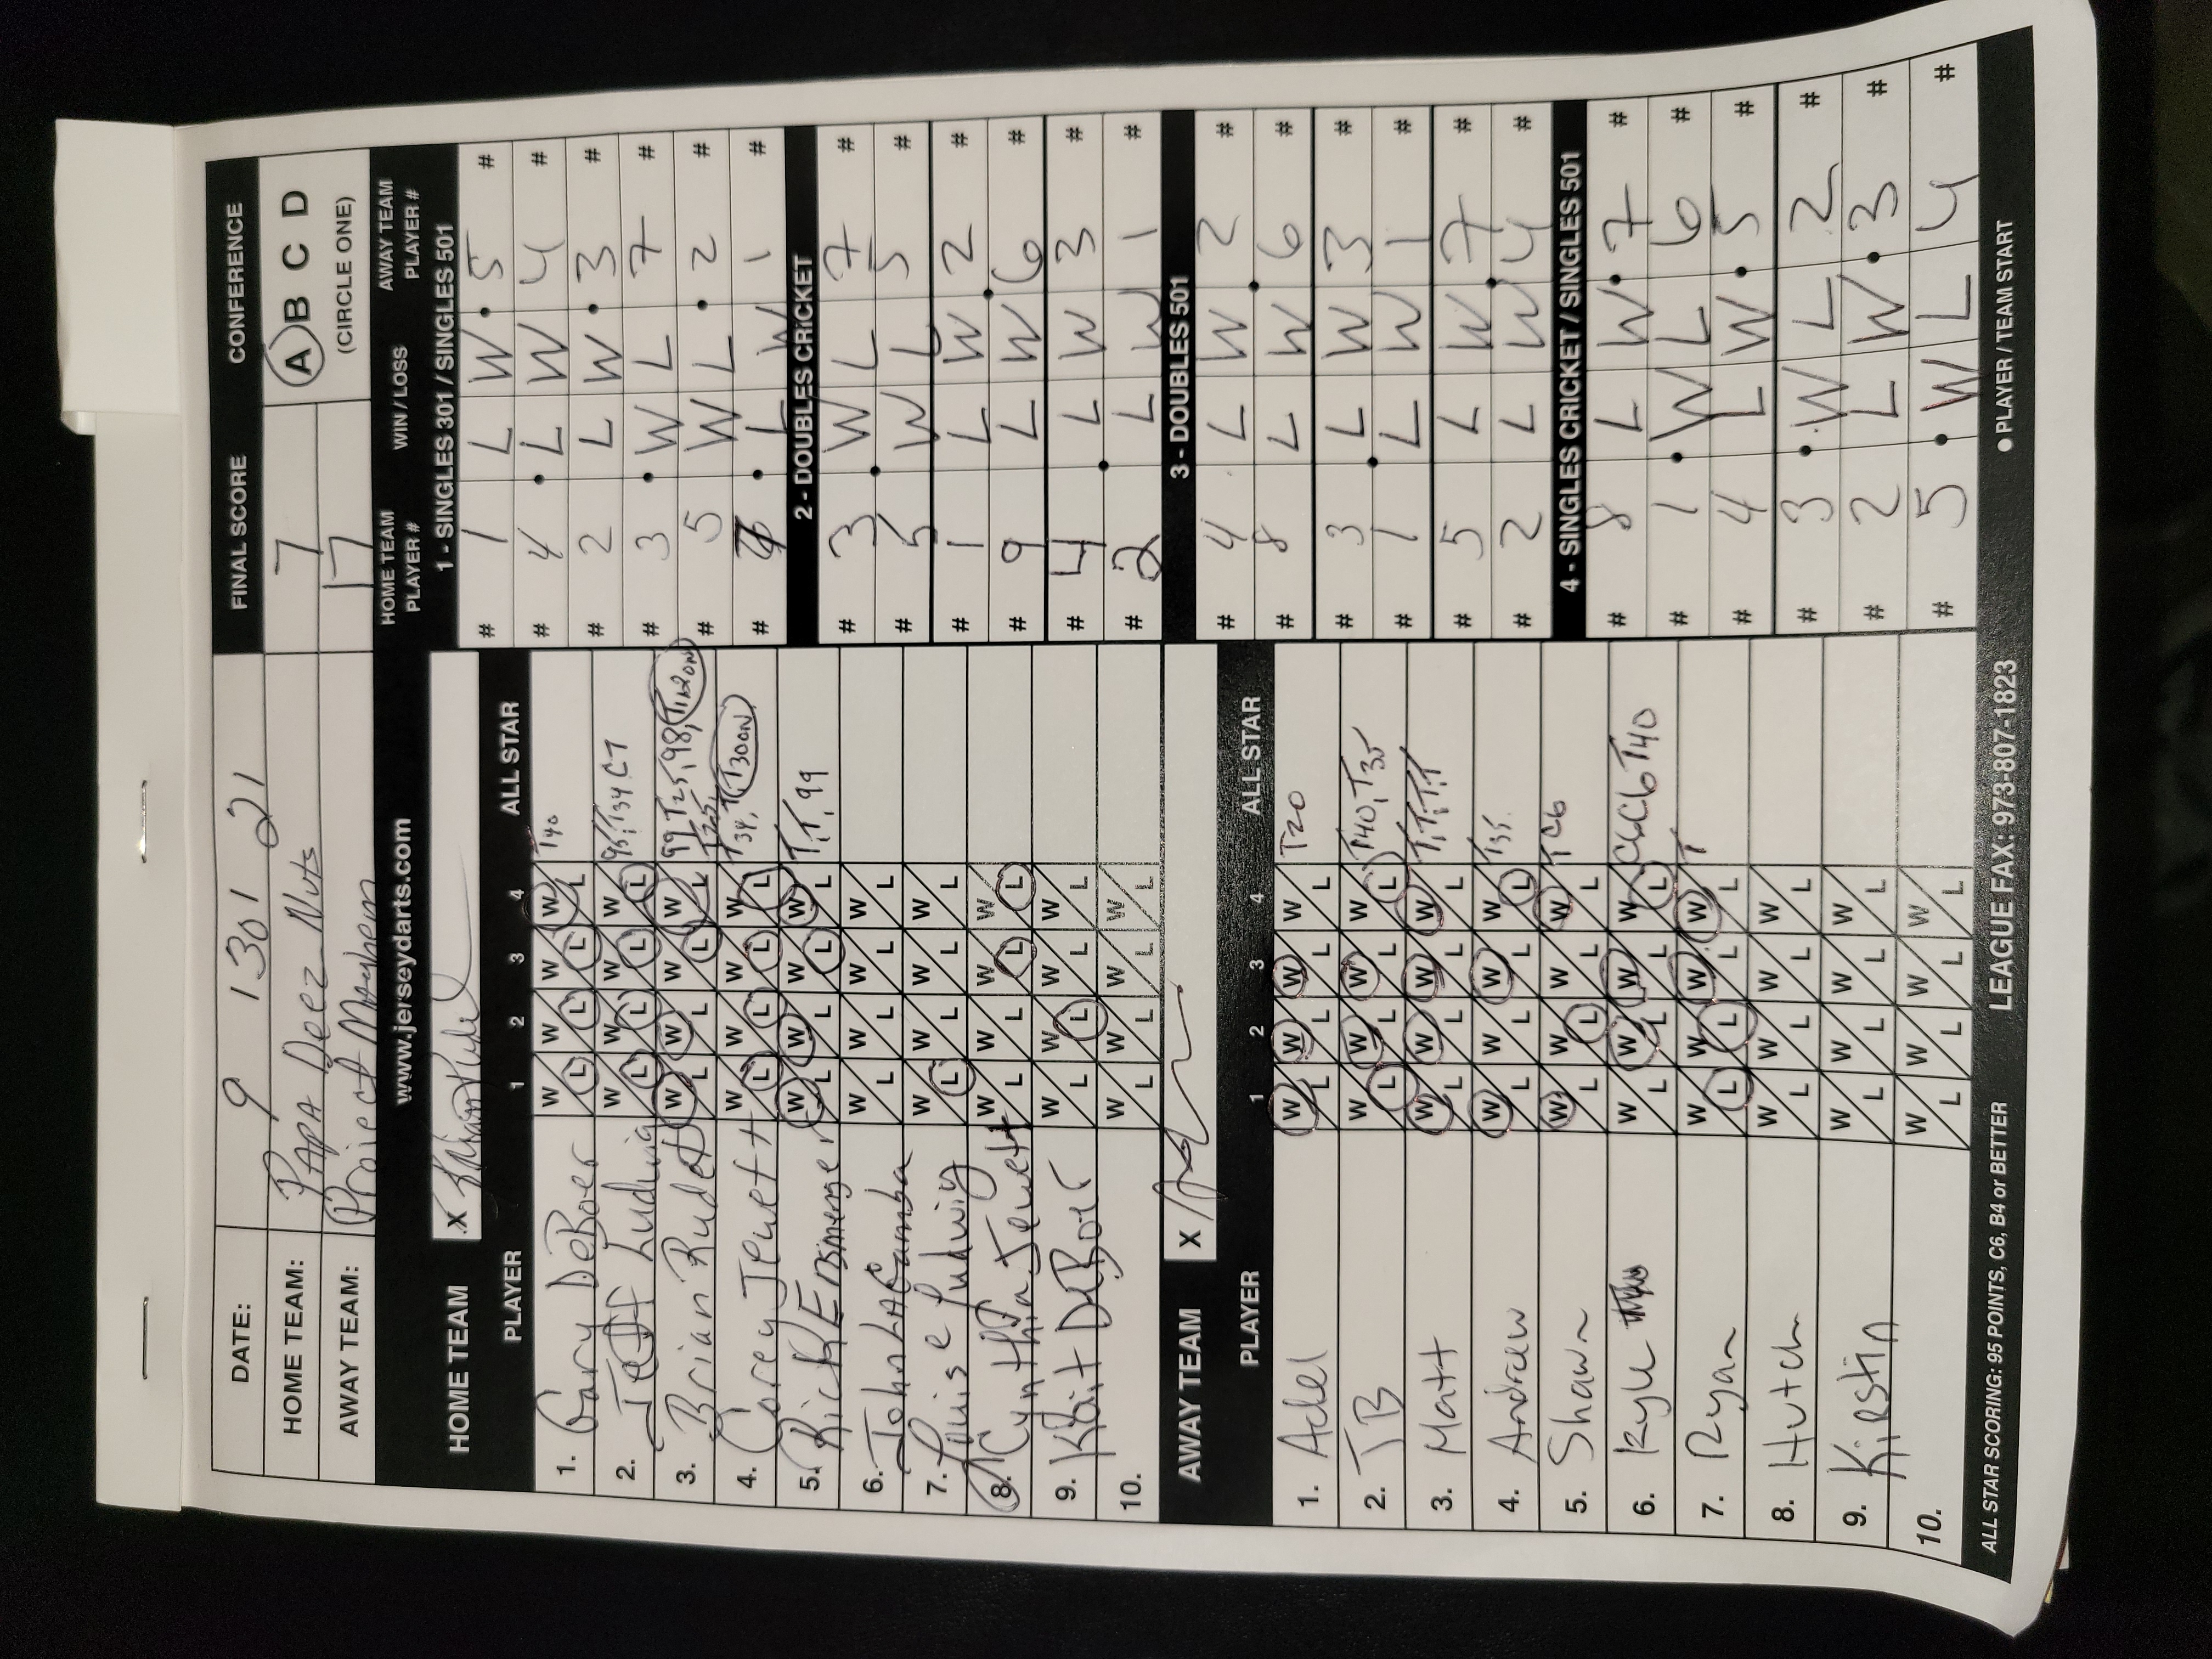 DATE: 9 1301 21 FINAL SCORE CONFERENCE
HOME TEAM: PAPA Deez Nuts 7 A B C D
AWAY TEAM: Project Mayhem 17 (CIRCLE ONE)
www.jerseydarts.com
HOME TEAM X
PLAYER 1 2 3 4 ALL STAR
1. Gary DeBoer W L W L W L W L T40
2. Jeff Ludwig W L W L W L W L 95, T34 C7
3. Brian Rudd W L W L W L W L 99 T25, 98, T120N
4. Corey Jewett W L W L W L W L T34, T, T300N
5. Rick Ensminger W L W L W L W L T, T, 99
6. John LACamba W L W L W L W L
7. Louise Ludwig W L W L W L W L
8. Cynthia Jewett W L W L W L W L
9. Kait DeBoer W L W L W L W L
10. W L W L W L W L
AWAY TEAM X
PLAYER 1 2 3 4 ALL STAR
1. Adel W L W L W L W L T20
2. JB W L W L W L W L T40, T35
3. Matt W L W L W L W L T, T, T, T
4. Andrew W L W L W L W L T35
5. Shawn W L W L W L W L T C6
6. Kyle W L W L W L W L C6 C6 T40
7. Ryan W L W L W L W L T
8. Hutch W L W L W L W L
9. Kirstin W L W L W L W L
10. W L W L W L W L
ALL STAR SCORING: 95 POINTS, C6, B4 or BETTER LEAGUE FAX: 973-807-1823
HOME TEAM PLAYER # WIN / LOSS AWAY TEAM PLAYER #
1 - SINGLES 301 / SINGLES 501
# 1 L W • 5 #
# 4 • L W 4 #
# 2 L W • 3 #
# 3 • W L 7 #
# 5 W L • 2 #
# 4 • L W 1 #
2 - DOUBLES CRICKET
# 3 W L 7 #
# 5 W L 5 #
# 1 L W 2 #
# 9 L W 6 #
# 4 L W 3 #
# 2 L W 1 #
3 - DOUBLES 501
# 4 L W 2 #
# 8 L W 6 #
# 3 L W 3 #
# 1 L W 1 #
# 5 L W 7 #
# 2 L W 4 #
4 - SINGLES CRICKET / SINGLES 501
# 8 L W • 7 #
# 1 • W L 6 #
# 4 L W • 5 #
# 3 • W L 2 #
# 2 L W • 3 #
# 5 • W L 4 #
• PLAYER / TEAM START